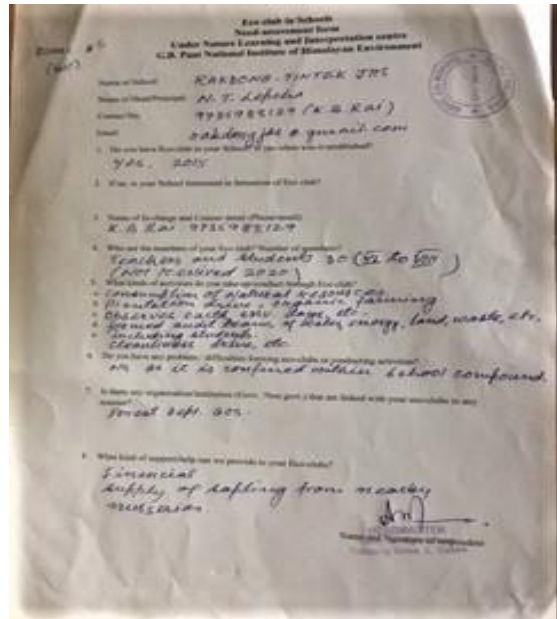 Eco-club in Schools
Need-assessment form
Under Nature Learning and Interpretation centre
G.B. Pant National Institute of Himalayan Environment
Name of School: RAKDONG-TINTEK JHS
Name of Head/Principal: N. T. Lepcha
Contact No: (K B Rai)
Email: rakdongjhs@gmail.com
1. Do you have Eco-club in your School? If yes when was it established?
Yes, 2015
2. If no, is your School interested in formation of Eco club?
3. Name of In-charge and Contact details (Phone/email)
K. B. Rai
4. Who are the members of your Eco club? Number of members?
Teachers and Students 30 (VI to VIII)
(Not Received 2020)
5. What kinds of activities do you take up/conduct through Eco-club?
Natural resources
Plantation drive, organic farming
Observes earth, env. days, etc.
formed audit team of water, energy, land, waste, etc.
including students.
Cleanliness drive, etc
6. Do you have any problem/difficulties forming eco-clubs or conducting activities?
as it is confined within School compound.
7. Is there any organisation/institution (Govt./Non govt.) that are linked with your eco-clubs in any manner?
Forest dept.
8. What kind of support/help can we provide to your Eco-clubs?
Financial
supply of sapling from nearby
nurseries
Name and Signature of respondent